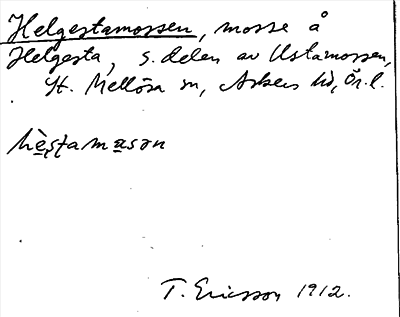 Helgestamossen, mosse å
Helgesta, s. delen av Ustamossen,
St. Mellösa sn, Askers hd, Ör. l.
hèstamasən
T. Ericsson 1912.